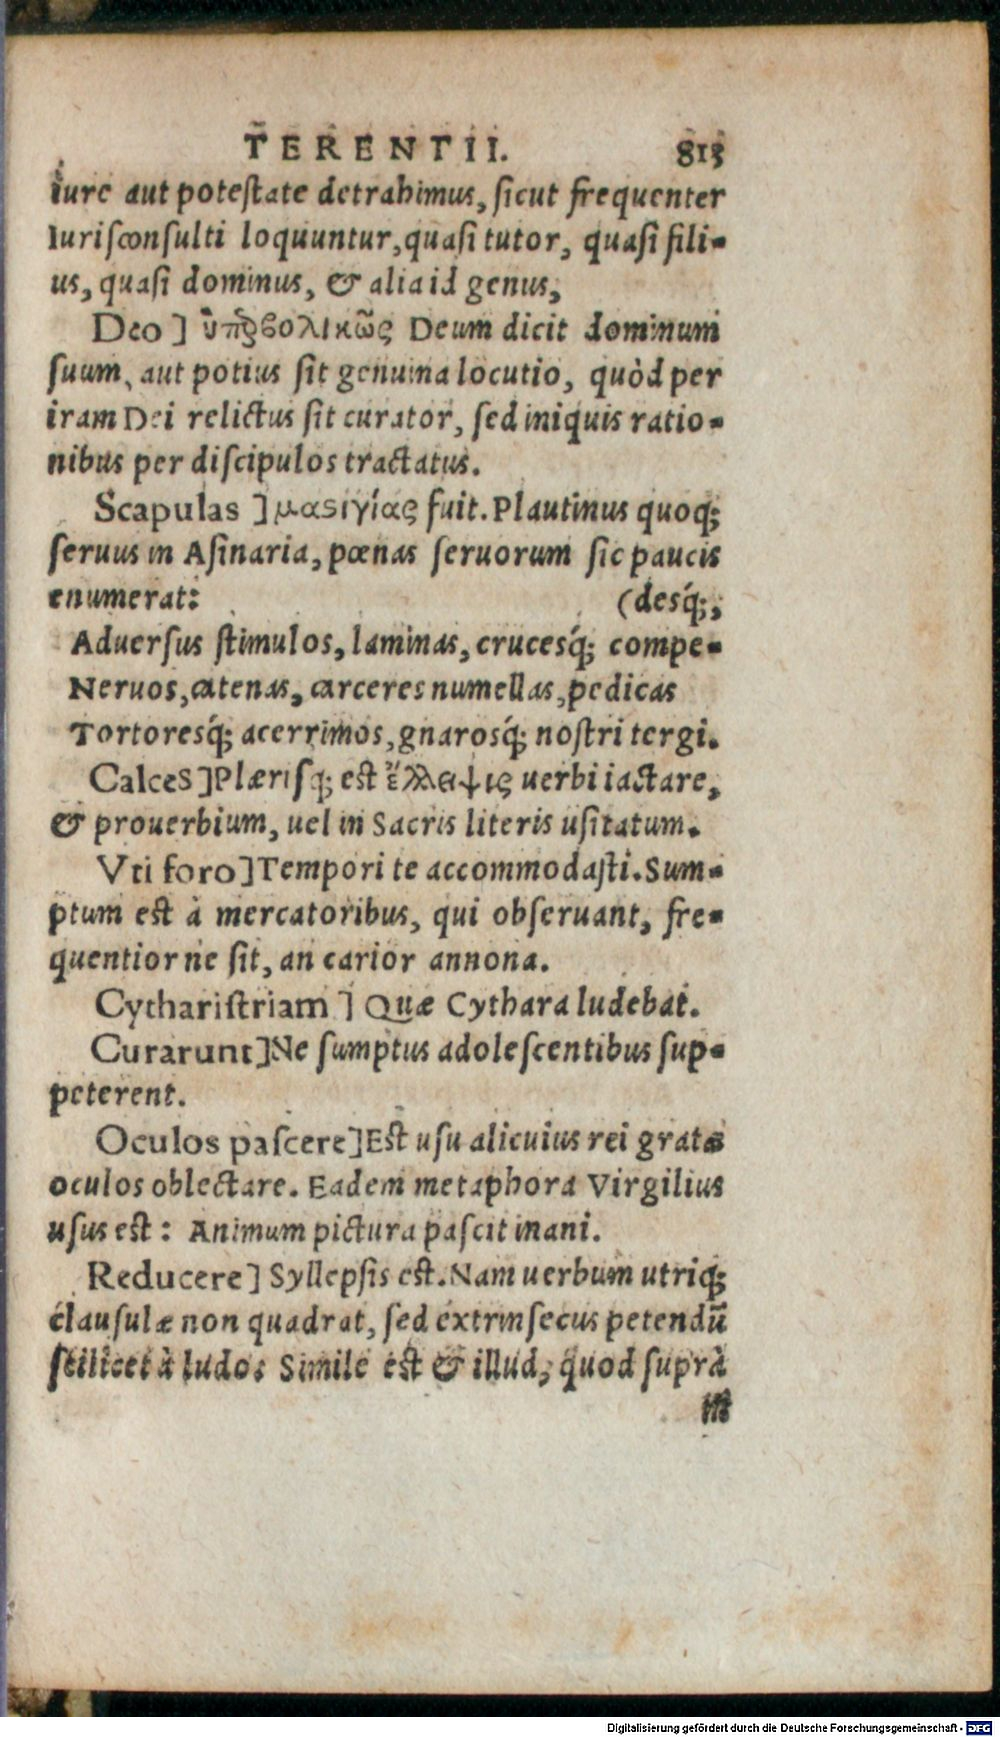 TERENTII. 813
iure aut poteſtate detrahimus, ſicut frequenter
Iuriſconſulti loquuntur, quaſi tutor, quaſi fili-
us, quaſi dominus, & alia id genus,
Deo] ὑπερβολικῶς Deum dicit dominum
ſuum, aut potius ſit genuina locutio, quòd per
iram Dei relictus ſit curator, ſed iniquis ratio-
nibus per diſcipulos tractatus.
Scapulas] μαστιγίας fuit. Plautinus quoq;
ſeruus in Aſinaria, pœnas ſeruorum ſic paucis
enumerat: (deſq́;,
Aduerſus ſtimulos, laminas, cruceſq́; compe-
Neruos, catenas, carceres numellas, pedicas
Tortoreſq́; acerrimos, gnaroſq́; noſtri tergi.
Calces] Plæriſq; eſt ἔλλειψις uerbi iactare,
& prouerbium, uel in Sacris literis uſitatum.
Vti foro] Tempori te accommodaſti. Sum-
ptum eſt à mercatoribus, qui obſeruant, fre-
quentior ne ſit, an carior annona.
Cythariſtriam] Quæ Cythara ludebat.
Curarunt] Ne ſumptus adoleſcentibus ſup-
peterent.
Oculos paſcere] Eſt uſu alicuius rei gratæ
oculos oblectare. Eadem metaphora Virgilius
uſus eſt: Animum pictura paſcit inani.
Reducere] Syllepſis eſt. Nam uerbum utriq;
clauſulæ non quadrat, ſed extrinſecus petendū
ſcilicet à ludo: Simile eſt & illud, quod ſuprà
in
Digitalisierung gefördert durch die Deutsche Forschungsgemeinschaft - DFG